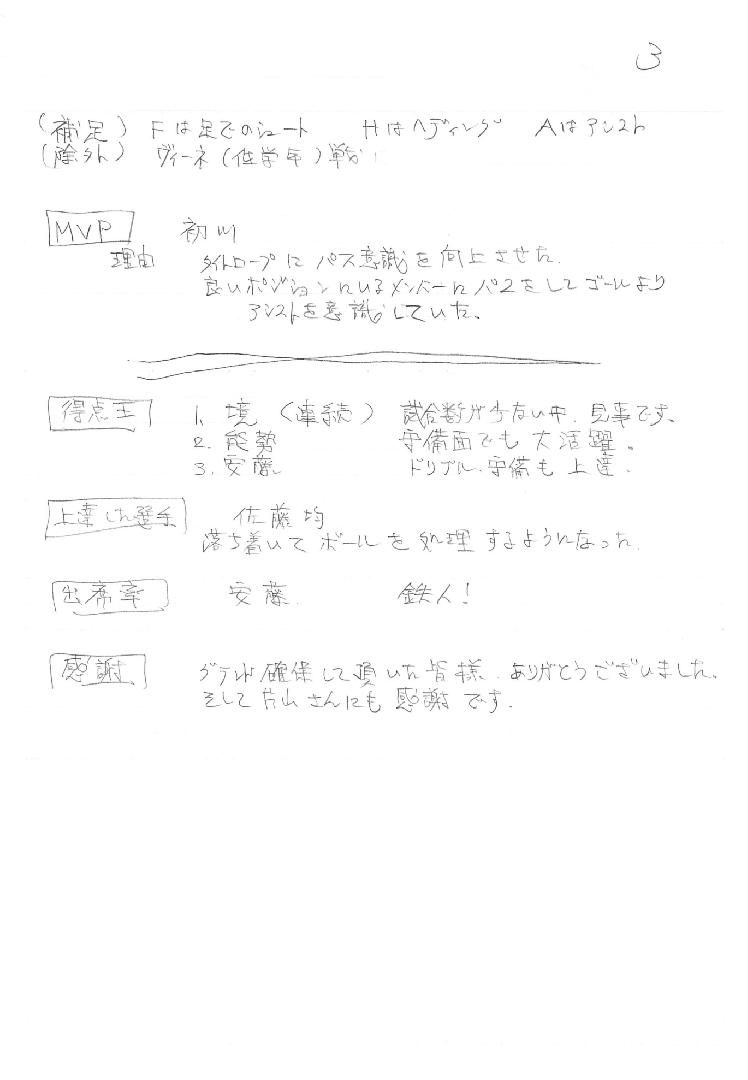 3
(補足) Fは足でのシュート HはヘディングAはアシスト
(除外) ヴィーネ(低学年)戦
MVP 初川
理由 タイトロープにパス意識を向上させた.
良いポジションにいるメンバーにパスをしてゴールより
アシストを意識していた。
得点王 1. 境 (連続) 試合数が少ない中、見事です。
2. 能勢 守備面でも大活躍。
3. 安藤 ドリブル、守備も上達.
上達した選手 佐藤均
落ち着いてボールを処理するようになった.
出席率 安藤. 鉄人!
感謝 グランド確保して頂いた皆様、ありがとうございました。
そして片山さんにも感謝です.